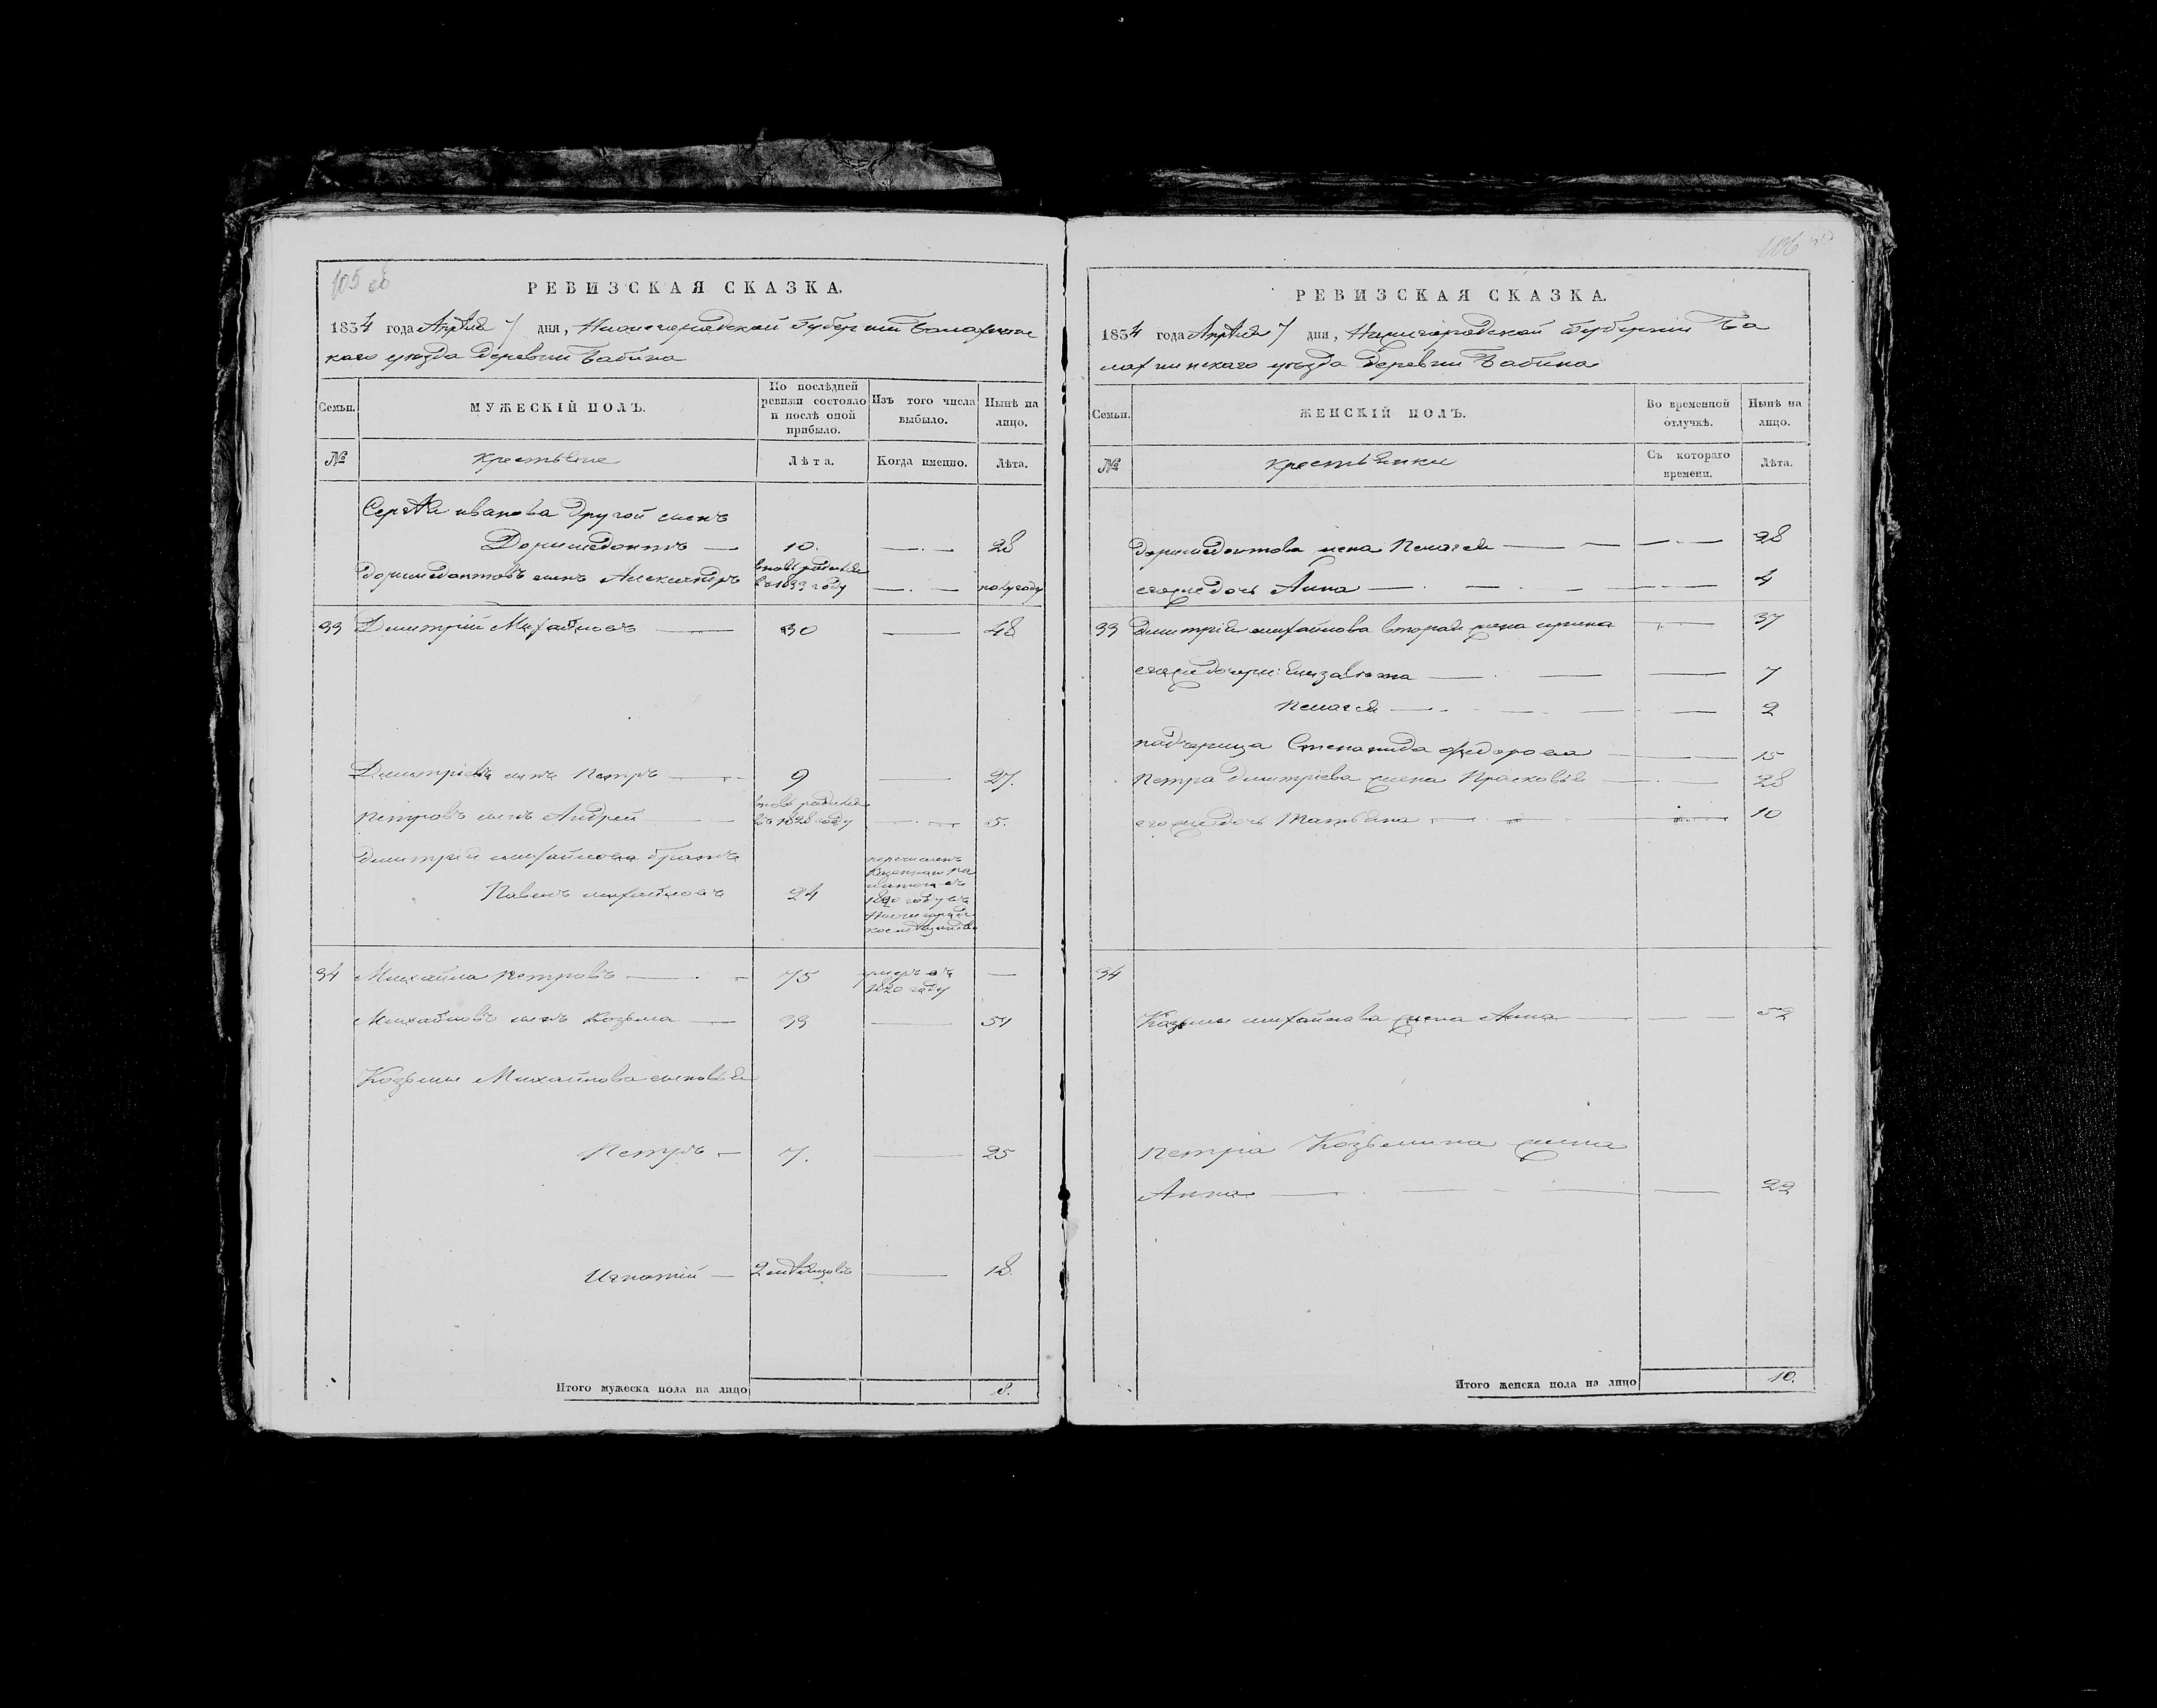 105 об
РЕВИЗСКАЯ СКАЗКА.
1834 года Апрѣля 7 дня, Нижегородской Губернии Балахнинс
каго уѣзда деревни Бабина
Семьи.
МУЖЕСКІЙ ПОЛЪ.
По послѣдней ревизіи состояло и послѣ оной прибыло.
Изъ того числа выбыло.
Нынѣ на лицо.
№
крестьяне
Лѣта.
Когда именно.
Лѣта.
Сергѣя иванова другой сынъ
Доримедонтъ — 10. — 28
Доримедонтовъ сынъ Александръ вновь рожденъ
в 1833 году — полугоду
33 Димитрий Михайловъ — 30 — 48
Димитріевъ сынъ Петръ — 9 — 27.
петровъ сынъ Андрей — вновь рожденъ
въ 1828 году — 5.
димитрия михайлова братъ
Павелъ михайловъ 24
1820 году въ
34 Михайла петровъ — 75 умеръ въ —
1820 году
Михайловъ сынъ Козьма — 33 — 51
Козьмы Михайлова сыновья
Петръ — 7. — 25
Игнатій — 2 мѣсяцовъ — 18.
Итого мужеска пола на лицо 8.
106
РЕВИЗСКАЯ СКАЗКА.
1834 года Апрѣля 7 дня, Нижегородской Губерніи Ба
лахнинскаго уѣзда деревни Бабина
Семьи.
ЖЕНСКІЙ ПОЛЪ.
Во временной отлучкѣ.
Нынѣ на лицо.
№
крестьянки
Съ котораго времени.
Лѣта.
доримедонтова жена Пелагея — 28
егожедочь Анна — 4
33 Димитрія михайлова вторая жена ирина — 37
егожедочери: Елизавета — 7
Пелагея — 2
падчерица Степанида федорова — 15
петра димитріева жена Прасковья — 28
егожедочь Татьяна — 10
34
Козьмы михайлова жена Анна — 52
петра Козьмина жена
Анна — 22
Итого женска пола на лицо 10.